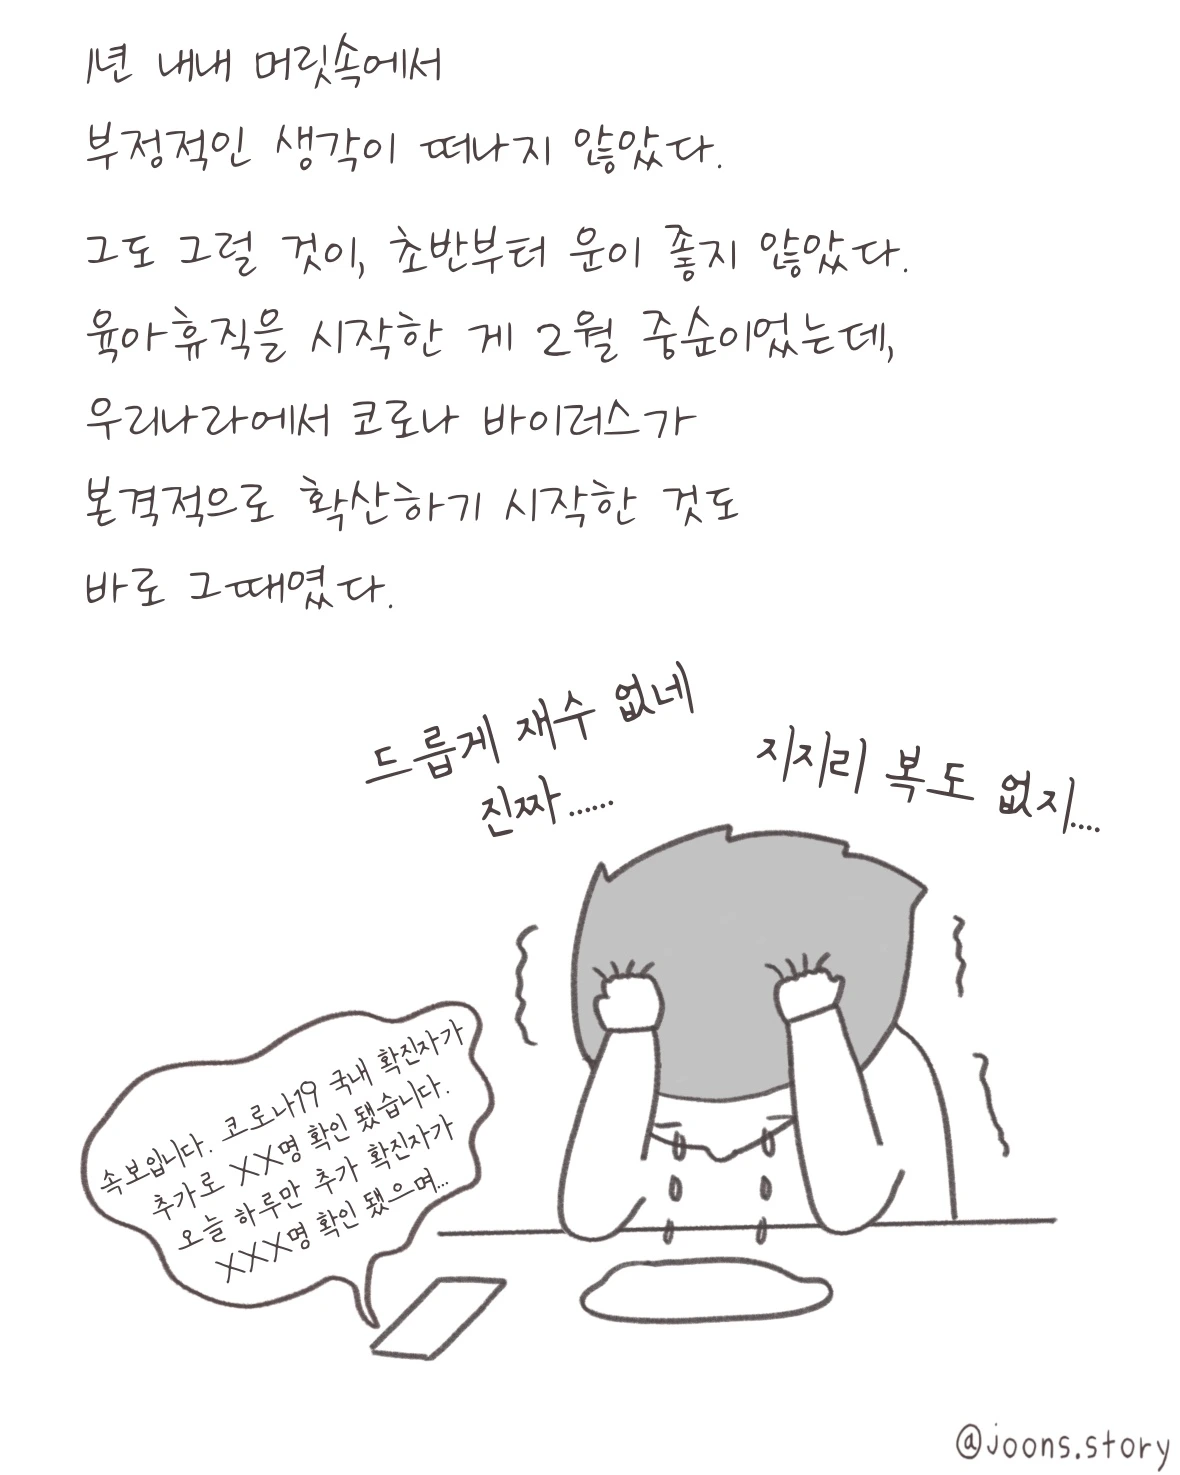 1년 내내 머릿속에서
부정적인 생각이 떠나지 않았다.
그도 그럴 것이, 초반부터 운이 좋지 않았다.
육아휴직을 시작한 게 2월 중순이었는데,
우리나라에서 코로나 바이러스가
본격적으로 확산하기 시작한 것도
바로 그때였다.
드릅게 재수 없네
진짜......
지지리 복도 없지....
속보입니다. 코로나19 국내 확진자가
추가로 XX명 확인 됐습니다.
오늘 하루만 추가 확진자가
XXX명 확인 됐으며...
@joons.story